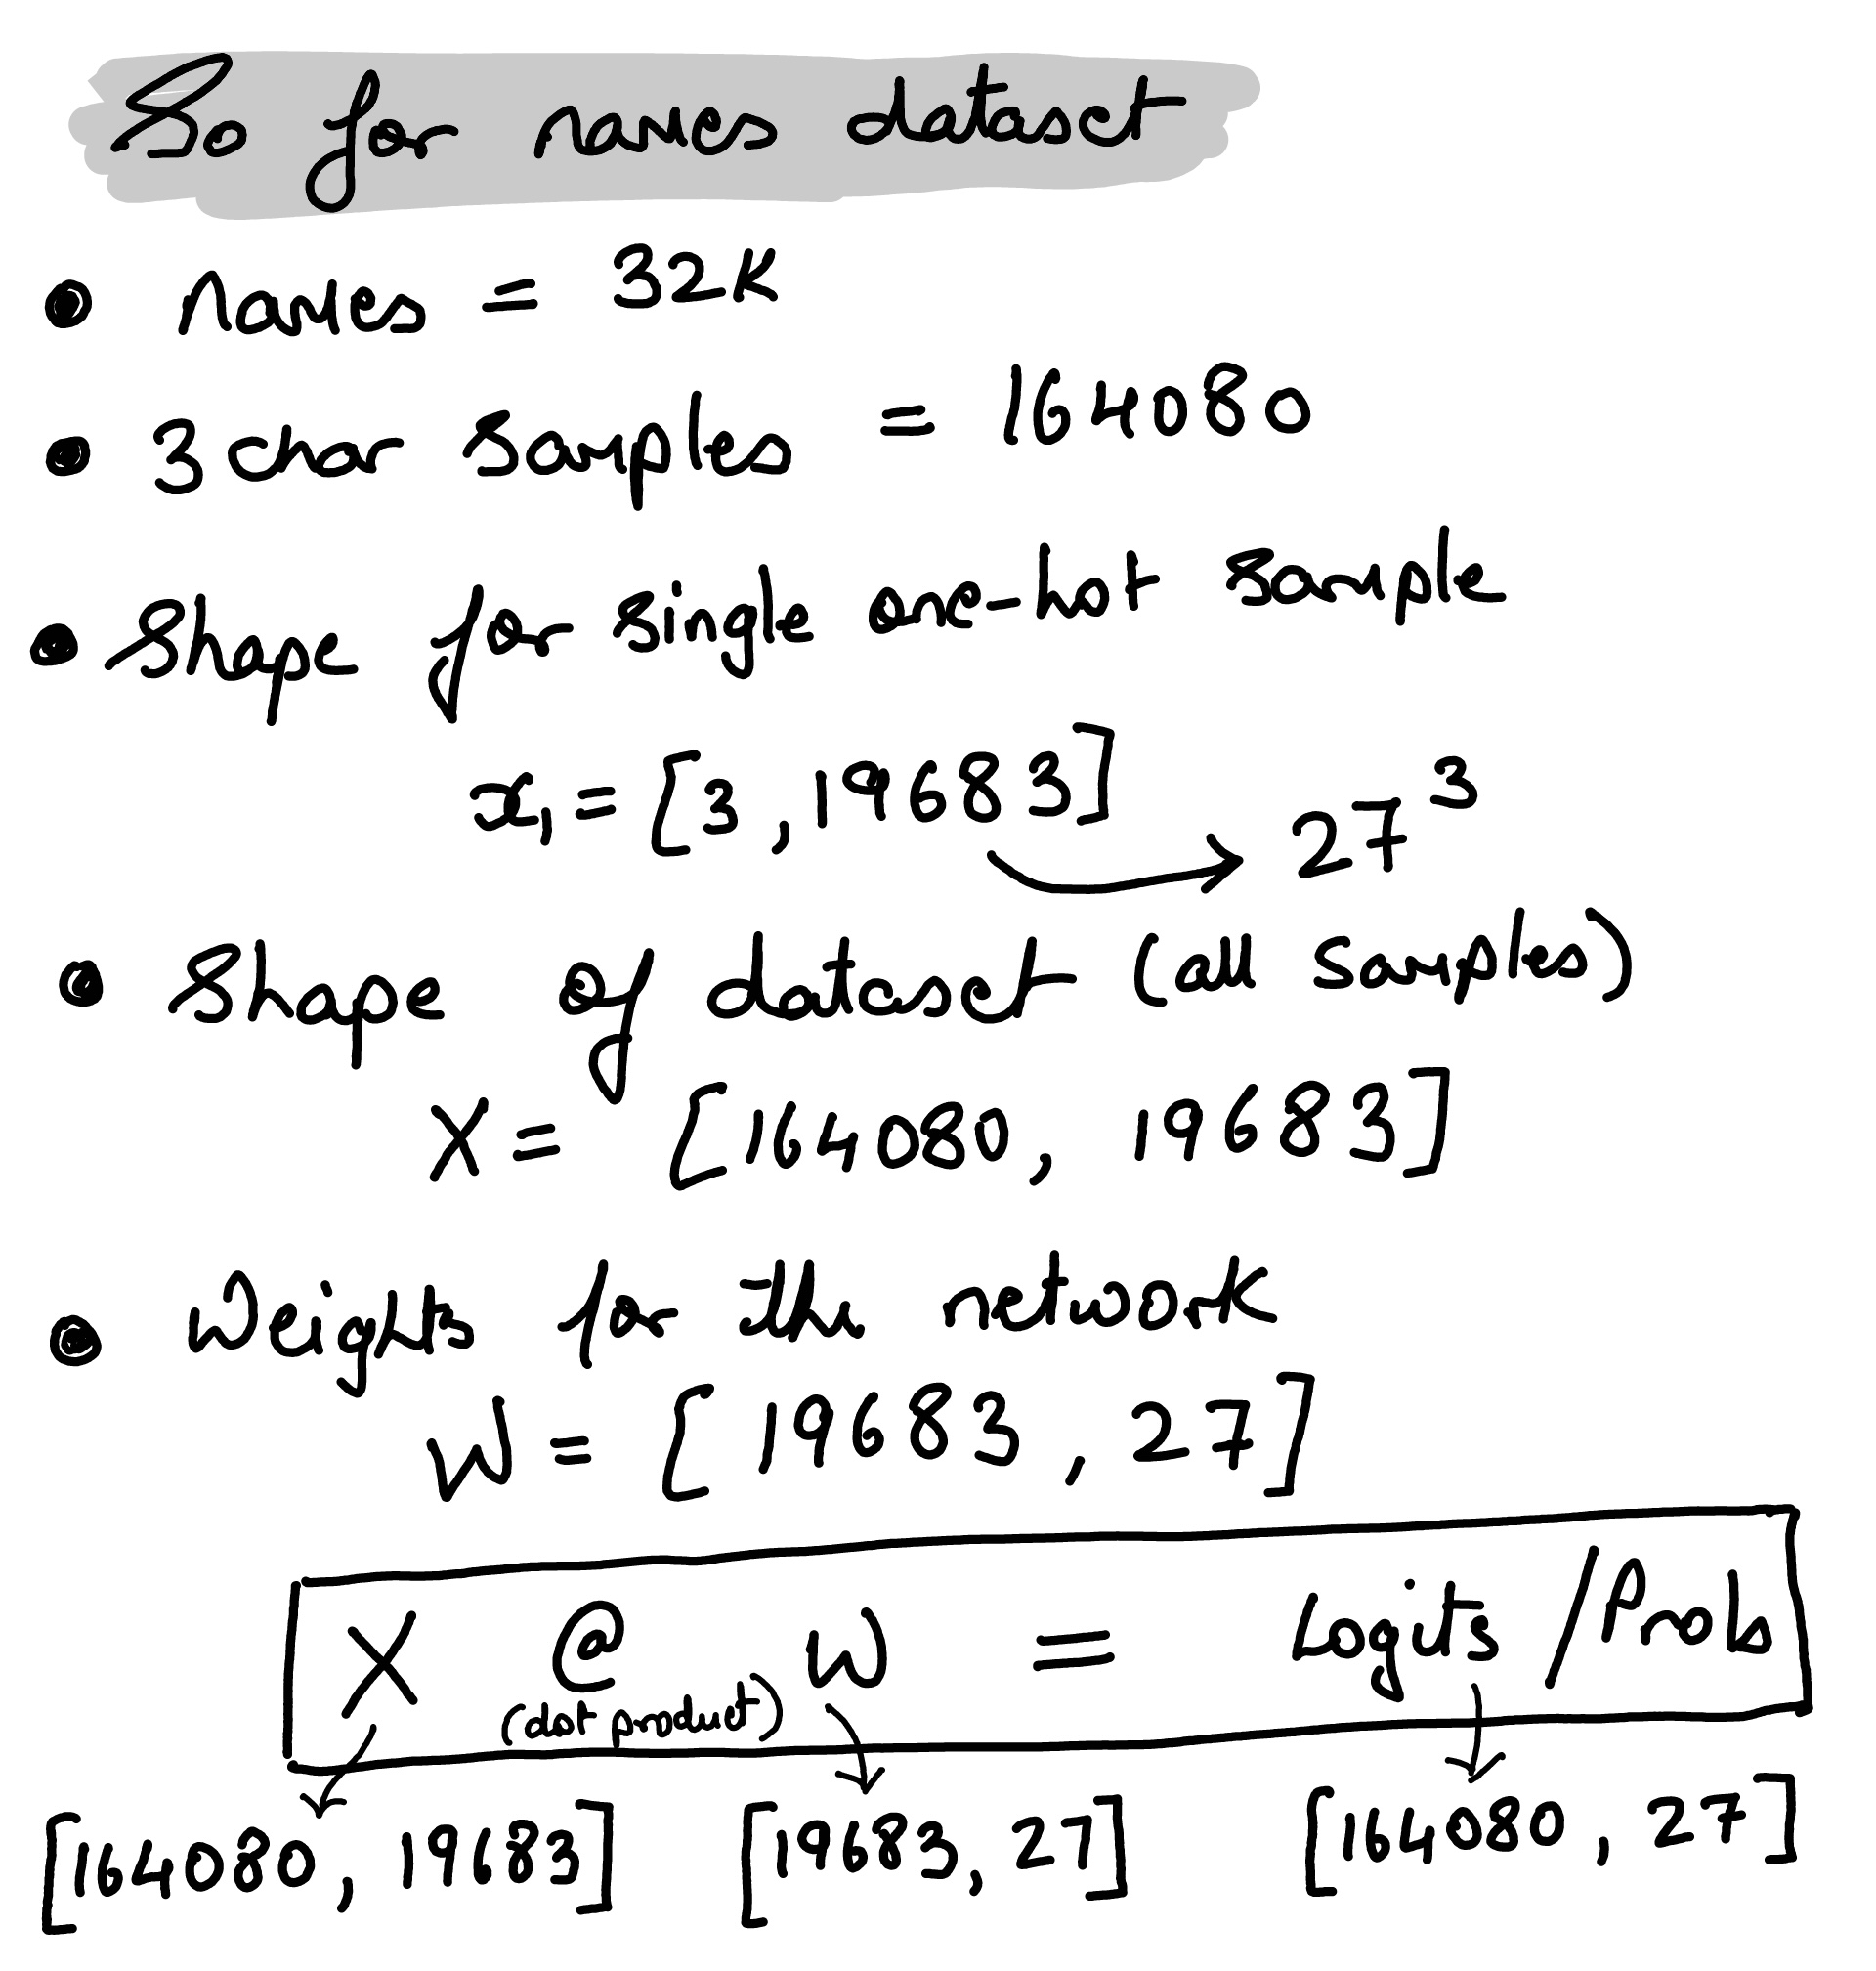 So for names dataset
names = 32K
3 char samples = 164080
Shape for single one-hot sample
x₁ = [3, 19683]
27³
Shape of dataset (all samples)
X = [164080, 19683]
Weights for the network
W = [19683, 27]
X @ W = Logits / Prob
(dot product)
[164080, 19683] [19683, 27] [164080, 27]